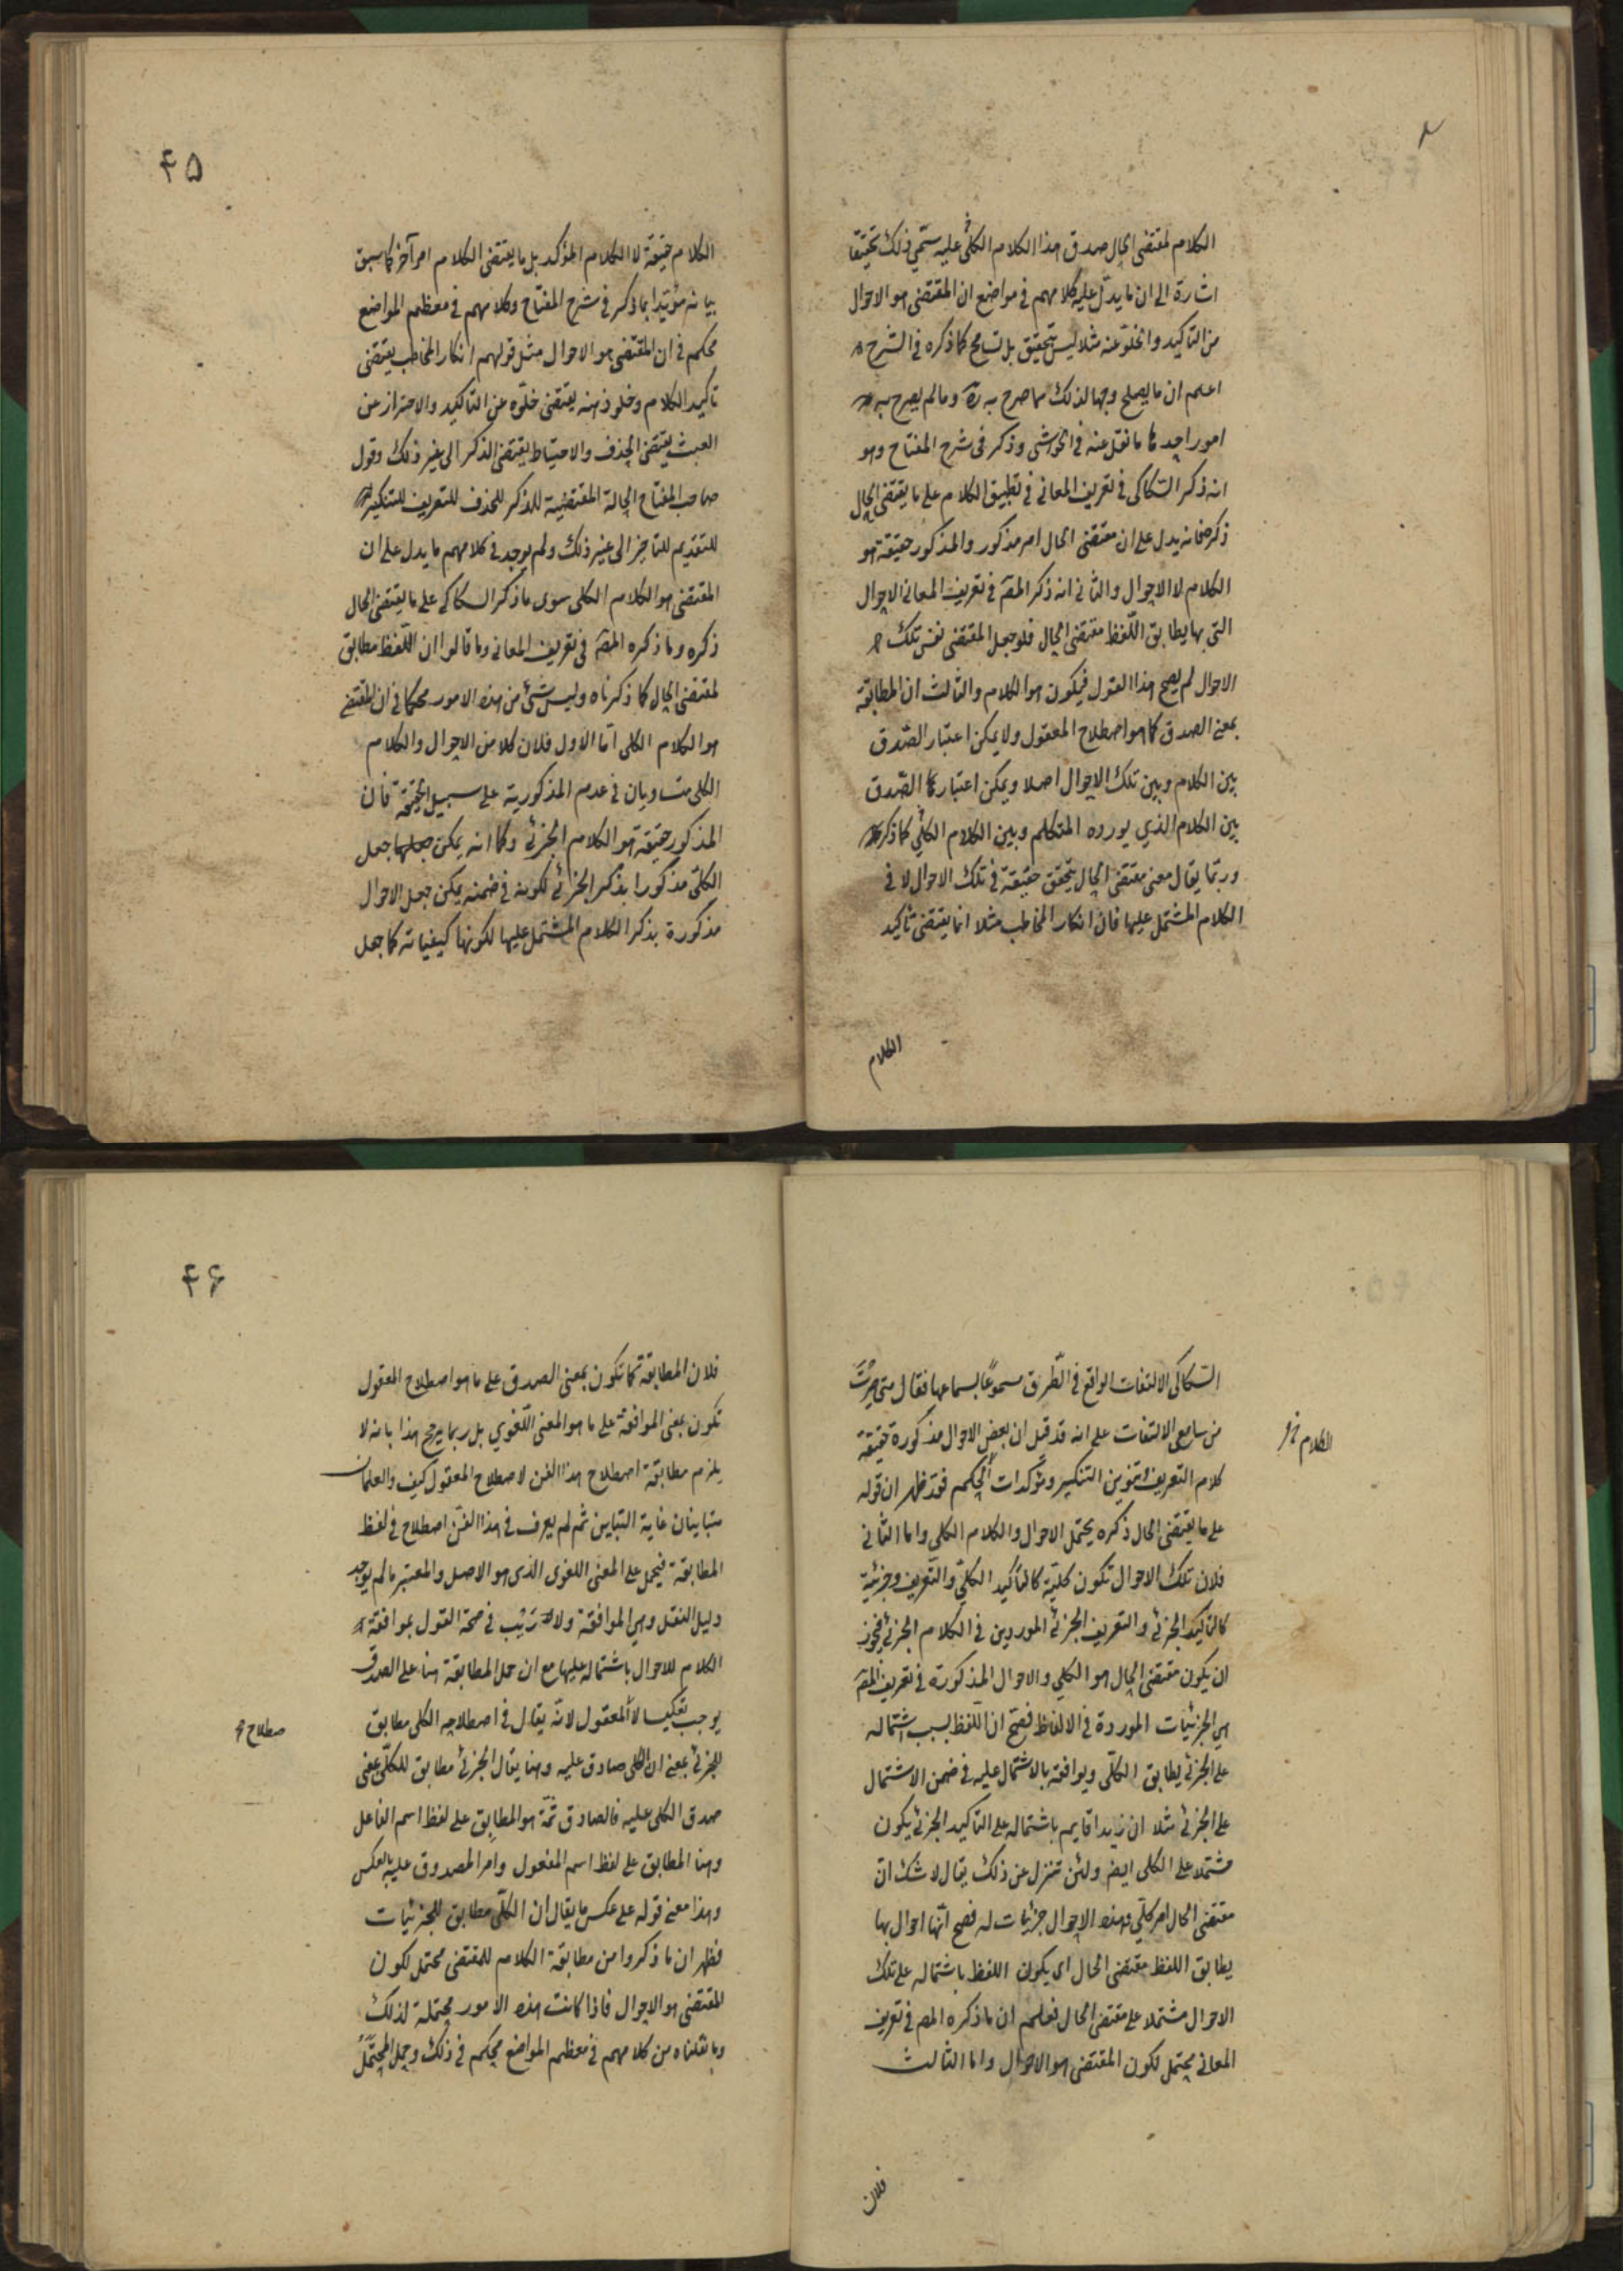 الكلام لمقتضى الحال صدق هذا الكلام الكلى عليه سمى ذلك تحقيقا
اشارة الى ان ما يدل عليه كلامهم فى مواضع ان المقتضى هو الاحوال
من التاكيد والخلو عنه مثلا ليس بتحقيق بل تسامح كما ذكره فى الشرح
اعلم ان ما يصلح وجها لذلك مما صرح به ره وما لم يصرح به
امور احدها ما نقل عنه فى الحواشى وذكر فى شرح المفتاح وهو
انه ذكر السكاكى فى تعريف المعانى فى تطبيق الكلام على ما يقتضى الحال
ذكره فانه يدل على ان مقتضى الحال امر مذكور والمذكور حقيقة هو
الكلام لا الاحوال والثانى انه ذكر المصَ فى تعريف المعانى الاحوال
التى بها يطابق اللفظ مقتضى الحال فلو جعل المقتضى نفس تلك
الاحوال لم يصح هذا القول فيكون هو الكلام والثالث ان المطابقة
بمعنى الصدق كما هو اصطلاح المعقول ولا يمكن اعتبار الصّدق
بين الكلام وبين تلك الاحوال اصلا ويمكن اعتبار الصّدق
بين الكلام الذي يورده المتكلم وبين الكلام الكلّي كما ذكر
وربّما يقال معنى مقتضى الحال يتحقق حقيقة فى تلك الاحوال لا فى
الكلام المشتمل عليها فان انكار المخاطب مثلا انما يقتضى تأكيد
الكلام
۴۵
الكلام حقيقة لا الكلام المؤكد بل ما يقتضى الكلام امر آخر كما سبق
بيانه مؤيّدا بما ذكر فى شرح المفتاح وكلامهم فى معظم المواضع
محكم فى ان المقتضى هو الاحوال مثل قولهم انكار المخاطب يقتضى
تاكيد الكلام وخلو ذهنه يقتضى خلوّه عن التاكيد والاحتراز عن
العبث يقتضى الحذف والاحتياط يقتضى الذكر الى غير ذلك وقول
صاحب المفتاح الحالة المقتضية للذكر للحذف للتعريف للتنكير
للتقديم للتاخير الى غير ذلك ولم يوجد فى كلامهم ما يدل على ان
المقتضى هو الكلام الكلى سوى ما ذكر السكاكى على ما يقتضى الحال
ذكره وما ذكره المصَ فى تعريف المعانى وما قالوا ان اللّفظ مطابق
لمقتضى الحال كما ذكرناه وليس شئ من هذه الامور محكما فى ان المقتضى
هو الكلام الكلى امّا الاول فلان كلا من الاحوال والكلام
الكلى متساويان فى عدم المذكورية على سبيل الحقيقة فان
المذكور حقيقة هو الكلام الجزئى وكما انه يمكن جعل
الكلىّ مذكورا بذكر الجزئى لكونه فى ضمنه يمكن جعل الاحوال
مذكورة بذكر الكلام المشتمل عليها لكونها كيفياته كما جعل
السّكاكى الالتفات الواقع فى الطّرق مسموعًا بسماعها فقال متى صرتُ
من سامعى الالتفات على انه قد قيل ان بعض الاحوال مذكورة حقيقة
كلام التعريف وتنوين التنكير ومؤكدات الحكم فقد ظهر ان قوله
على ما يقتضى الحال ذكره يحتمل الاحوال والكلام الكلى واما الثانى
فلان تلك الاحوال تكون كليّة كالتأكيد الكلىّ والتّعريف وجزئية
كالتاكيد الجزئى والتعريف الجزئى الموردين فى الكلام الجزئى فيجوز
ان يكون مقتضى الحال هو الكلي والاحوال المذكورة فى تعريف المصَ
هى الجزئيّات الموردة فى الالفاظ فصحّ ان اللّفظ بسبب اشتماله
على الجزئى يطابق الكلّى ويوافقه بالاشتمال عليه فى ضمن الاشتمال
على الجزئى مثلا ان زيدا قايم باشتماله على التاكيد الجزئى يكون
مشتملا على الكلى ايضر ولئن تنزل عن ذلك يقال لا شك انّ
مقتضى الحال امر كلّى وهذه الاحوال جزئيات له فصح انّها احوال بها
يطابق اللفظ مقتضى الحال اى يكون اللفظ باشتماله على تلك
الاحوال مشتملا على مقتضى الحال فعلم ان ما ذكره المصر فى تعريف
المعانى يحتمل لكون المقتضى هو الاحوال واما الثالث
فلان
۴۶
فلان المطابقة كما تكون بمعنى الصدق على ما هو اصطلاح المعقول
تكون بمعنى الموافقة على ما هو المعنى اللّغوي بل ربما يرجح هذا بانه لا
يلزم مطابقة اصطلاح هذا الفن لاصطلاح المعقول كيف والعلمان
متباينان غاية التباين ثم لم يعرف فى هذا الفن اصطلاح فى لفظ
المطابقة فيحمل على المعنى اللغوى الذى هو الاصل والمعتبر ما لم يوجد
دليل النقل وهى الموافقة ولا رَيب فى صحّة القول بموافقة
الكلام للاحوال باشتماله عليها مع ان حمل المطابقة هنا على الصدق
يوجب تعكيسا لالمعقول لانّه يقال فى اصطلاحه الكلى مطابق
صطلاح
للجزئى بمعنى ان الكلى صادق عليه وهنا يقال الجزئى مطابق للكلّى بمعنى
صدق الكلى عليه فالصادق ثمّة هو المطابِق على لفظ اسم الفاعل
وهنا المطابق على لفظ اسم المفعول وامر المصدوق عليه بالعكس
وهذا معنى قوله على عكس ما يقال ان الكلّى مطابق للجزئيات
فظهر ان ما ذكروا من مطابقة الكلام للمقتضى محتمل لكون
المقتضى هو الاحوال فاذا كانت هذه الامور محتملة لذلك
وما نقلناه من كلامهم فى معظم المواضع محكم فى ذلك وحمل المحتمَل